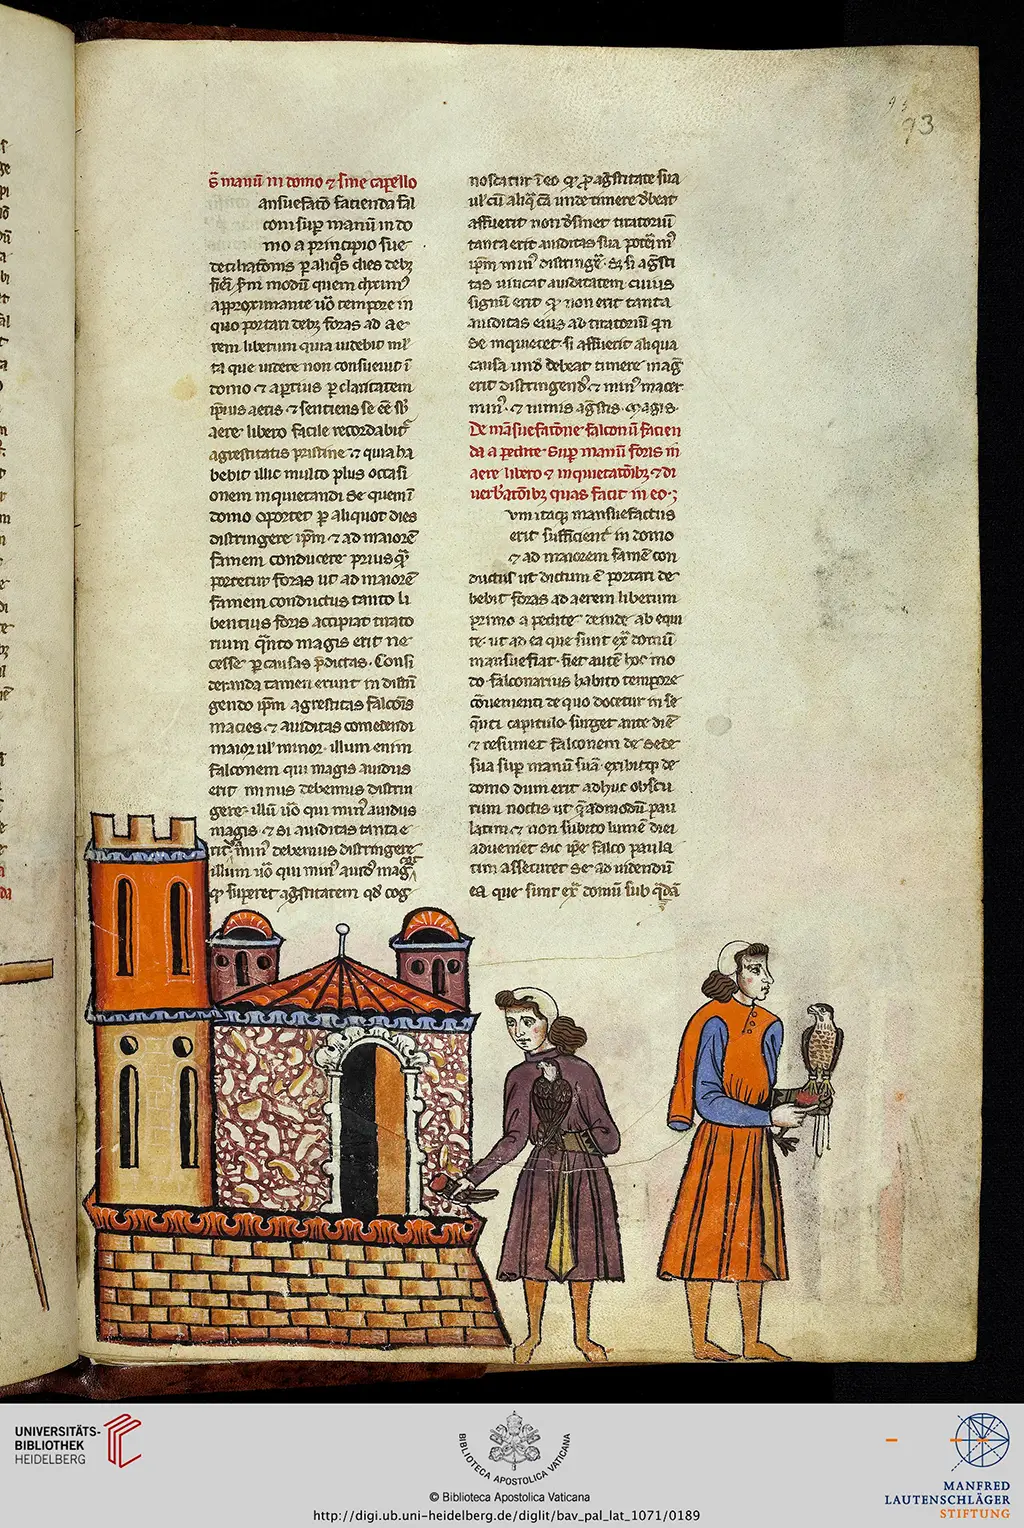 93
93
sr̄ manū in domo ⁊ sine capello
ansuefactō facienda fal
coni sup̄ manū in do
mo a principio sue
p aliq̄s dies debȝ
fieri sm̄ modū quem diximꝰ
appropinquante ūo tempore in
quo portari debȝ foras ad ae
rem liberum quia uidebit mͥ
ta que uidere non consueuit ī
domo ⁊ aptius p claritatem
ip̄ius aeris ⁊ sentiens se eē sb̄
aere libero facile recordabit̄
agrestitatis pristine ⁊ quia ha
bebit illic multo plus occasi
onem inquietandi se quem ī
domo oportet p aliquot dies
distringere ip̄m ⁊ ad maiorē
famem conducere priusq̄
portetur foras ut ad maiorē
famem conductus tanto li
bentius foris accipiat tirato
rium q̄nto magis erit ne
cesse p causas p̄dictas. Consi
deranda tamen erunt in distrī
gendo ip̄m agrestitas falcōis
macies ⁊ auiditas comedendi
maior ul̓ minor. illum enim
falconem qui magis auidus
erit minus debemus distrin
gere. illū ūo qui minꝰ auidus
magis. ⁊ si auiditas tanta e
rit minꝰ debemus distringere
illum ūo qui minꝰ auidꝰ mag̓
qͥ superet agrestitatem qd̓ cog
noscatur ī eo qͥ p agrestitate sua
ul̓ cū aliq̄ cā unde timere debeat
affuerit non desinet tiratoriū
tanta erit auiditas sua poterimꝰ
ip̄m minꝰ distringere. Sȝ si agresti
tas uincat auiditatem cuius
signū erit qͥ non erit tanta
auiditas eius ad tiratoriū qn̄
se inquietet. si affuerit aliqua
causa unde debeat timere mag̓
erit distringendꝰ ⁊ minꝰ macer
minꝰ. ⁊ nimis agrestis magis.
De māsuefactiōne falconū facien
da a pedite sup̄ manū foris in
aere libero ⁊ inquietatōibȝ ⁊ di
uerb̓atōibȝ quas facit in eo.
um itaqȝ mansuefactus
erit sufficient̓ in domo
⁊ ad maiorem famē con
ductus ut dictum ē portari de
bebit foras ad aerem liberum
primo a pedite deinde ab equi
te. ut ad ea que sunt ex̄ domū
mansuefiat. fiet autē hoc mo
do falconarius habito tempore
cōuenienti de quo docetur in se
q̄nti capitulo surget ante diē
⁊ resumet falconem de sede
sua sup̄ manū suā exibitqȝ de
domo dum erit adhuc obscu
rum noctis ut q̄admodū pau
latim ⁊ non subito lumē diei
adueniet sic ip̄e falco paula
tim assecuret se ad uidendū
ea que sunt ex̄ domū sub q̄dā
UNIVERSITÄTS-
BIBLIOTHEK
HEIDELBERG
BIBLIOTECA APOSTOLICA VATICANA
© Biblioteca Apostolica Vaticana
http://digi.ub.uni-heidelberg.de/diglit/bav_pal_lat_1071/0189
MANFRED
LAUTENSCHLÄGER
STIFTUNG